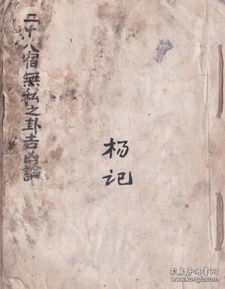 二十八宿無私之卦吉凶論
杨记
孔夫子旧书网